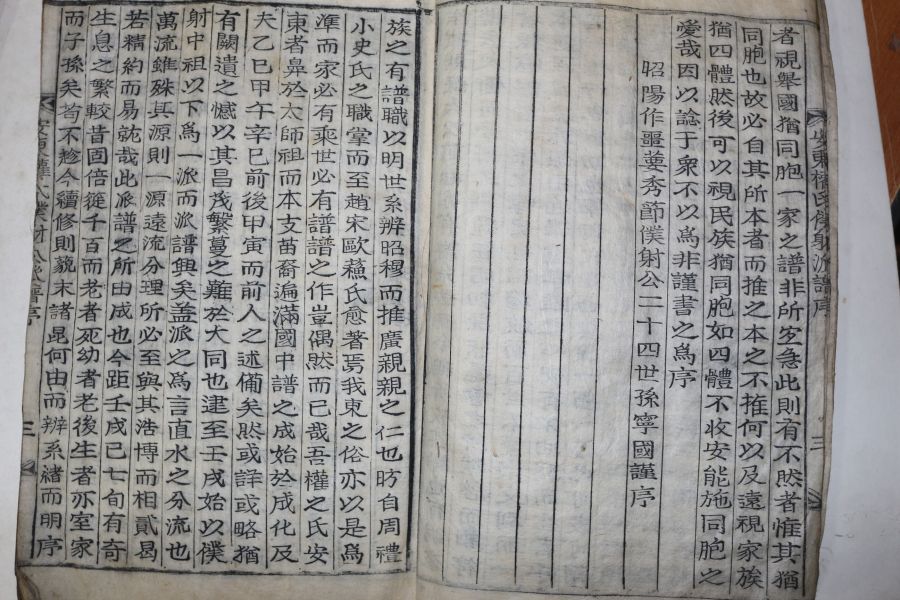 安東權氏僕射派譜序 三
者視舉國猶同胞一家之譜非所至急此則有不然者惟其猶
同胞也故必自其所本者而推之本之不推何以及遠視家族
猶四體然後可以視民族猶同胞如四體不收安能施同胞之
愛哉因以諗于衆不以爲非謹書之爲序
昭陽作噩葽秀節僕射公二十四世孫寧國謹序
族之有譜職以明世系辨昭穆而推廣親親之仁也昉自周禮
小史氏之職掌而至趙宋歐蘓氏愈著焉我東之俗亦以是爲
準而家必有乘世必有譜譜之作豈偶然而已哉吾權之氏安
東者鼻於太師祖而本支苗裔遍滿國中譜之成始於成化及
夫乙巳甲午辛巳前後甲寅而前人之述備矣然或詳或略猶
有闕遺之憾以其昌茂繁蔓之難於大同也逮至壬戌始以僕
射中祖以下爲一派而派譜興矣盖派之爲言直水之分流也
萬流雖殊其源則一源遠流分理所必至與其浩博而相貳曷
若精約而易就哉此派譜之所由成也今距壬戌已七旬有奇
生息之繁較昔固倍蓰千百而老者死幼者老後生者亦室家
而子孫矣苟不趁今續修則藐末諸昆何由而辨系緖而明序
譜序 三